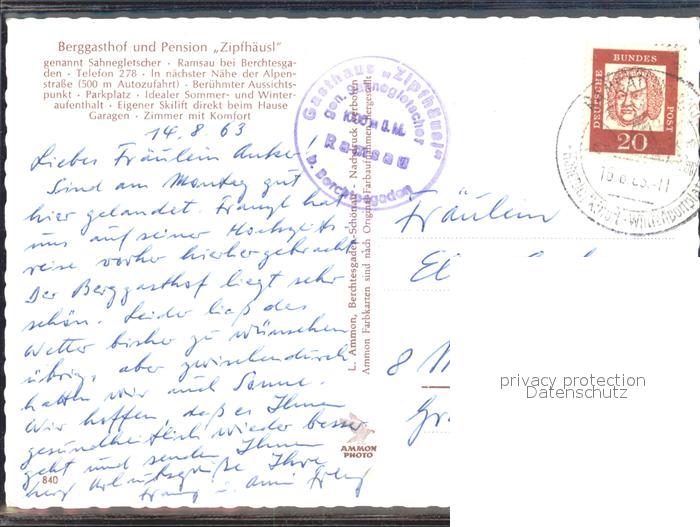 Berggasthof und Pension „Zipfhäusl“
genannt Sahnegletscher · Ramsau bei Berchtesga-
den · Telefon 278 · In nächster Nähe der Alpen-
straße (500 m Autozufahrt) · Berühmter Aussichts-
punkt · Parkplatz · Idealer Sommer- und Winter-
aufenthalt · Eigener Skilift direkt beim Hause
Garagen · Zimmer mit Komfort
14.8.63
Liebes Fräulein
Sind am Montag gut
hier gelandet. hat
uns auf seiner Hochzeits
reise vorher hierhergebracht.
Der Berggasthof liegt sehr
schön. Leider ließ das
Wetter bisher zu wünschen
übrig, aber zwischendurch
hatten wir auch Sonne.
Wir hoffen, daß es Ihnen
gesundheitlich wieder besser
geht und senden Ihnen
herzl. Urlaubsgrüße Ihre
840
AMMON
PHOTO
L. Ammon, Berchtesgaden-Schönau - Nachdruck verboten
Ammon Farbkarten sind nach Original-Farbaufnahmen hergestellt
Gasthaus „Zipfhäusl“
gen. Sahnegletscher
Ramsau
b. Berchtesgaden
DEUTSCHE BUNDES POST
20
Fräulein
El
8 M
Gr
privacy protection
Datenschutz